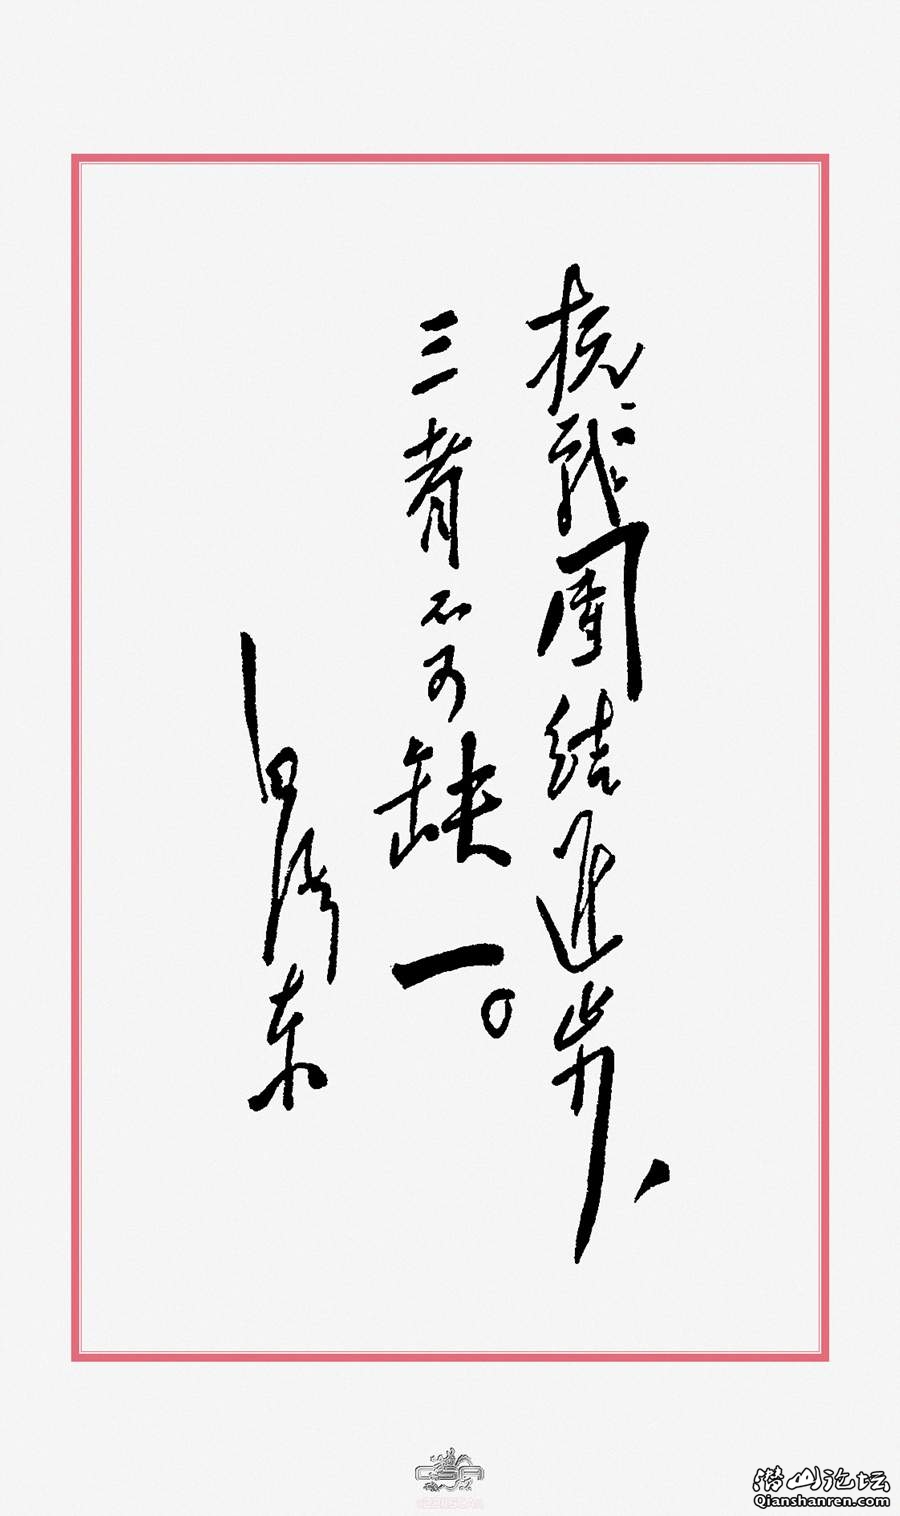 抗战团结进步、
三者不可缺一。
毛泽东
CSA
潜山论坛
Qianshanren.com